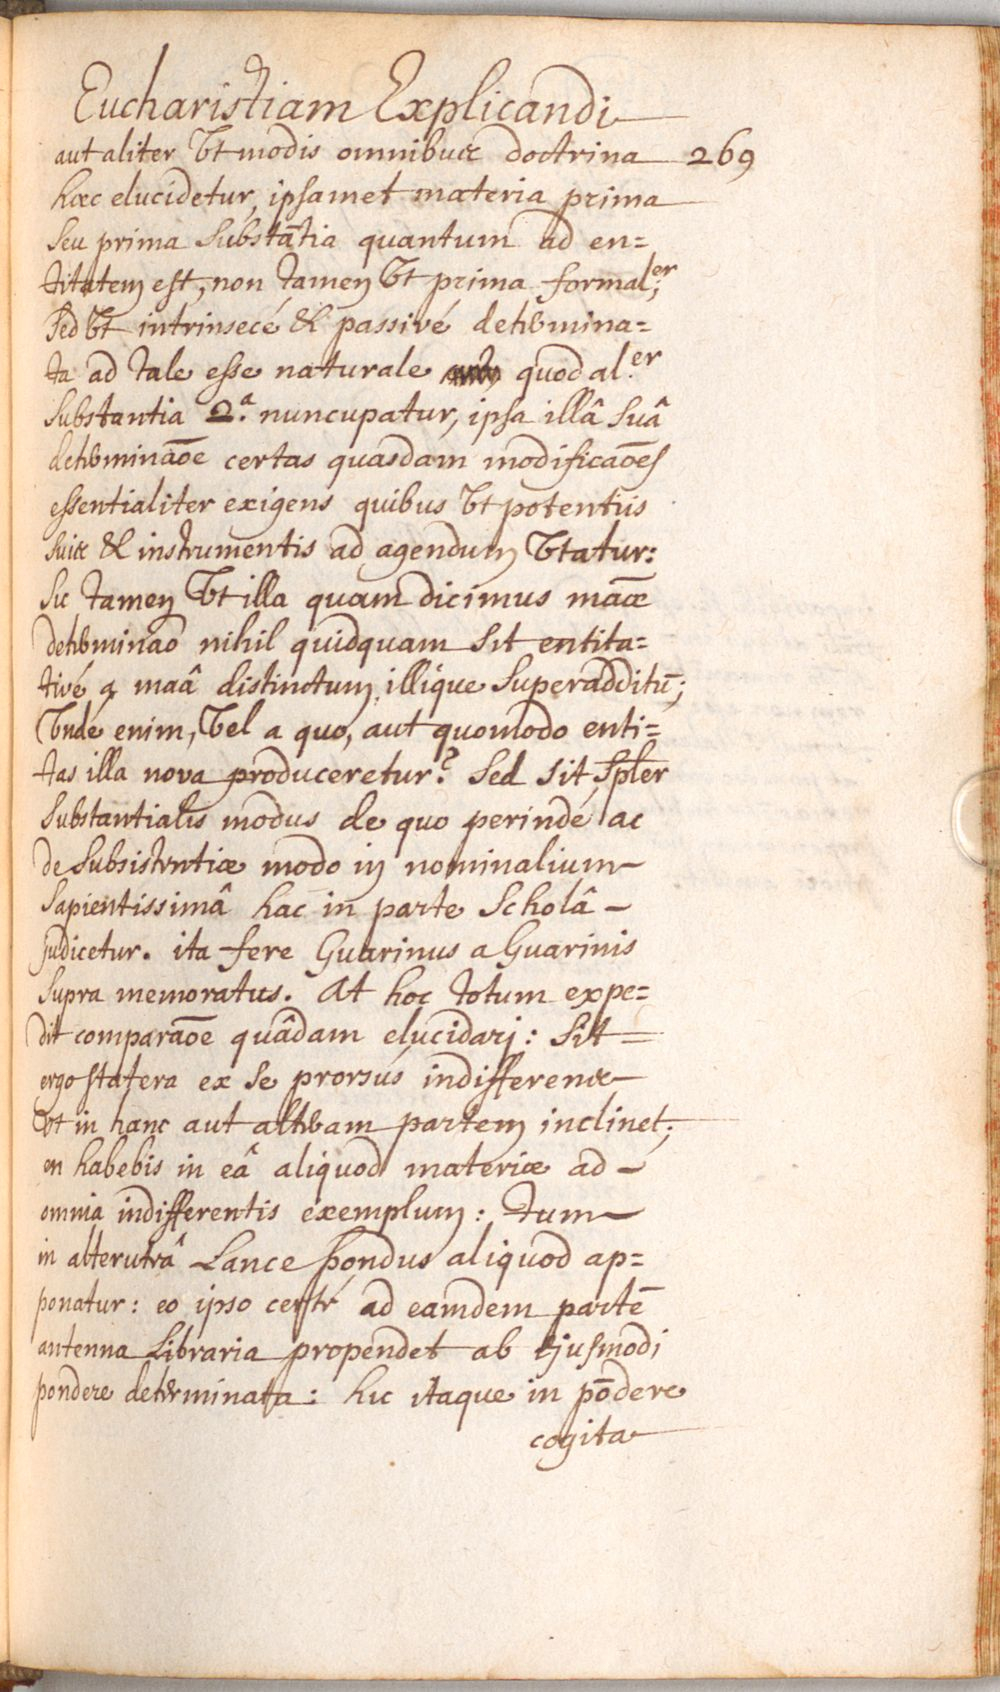 Eucharistiam Explicandi
aut aliter Vt modis omnibus doctrina 269
hæc elucidetur, ipsamet materia prima
seu prima substātia quantum ad en=
titatem est, non tamen Vt prima formal.er;
sed Vt intrinsecé & passivé determina=
ta ad tale esse naturale quod al.er
substantia 2.a nuncupatur, ipsa illâ suâ
determinaōe certas quasdam modificaōes
essentialiter exigens quibus Vt potentiis
suis & instrumentis ad agendum Vtatur:
sic tamen Vt illa quam dicimus māæ
determinao nihil quidquam sit entita=
tivé a maâ distinctum illique superadditū;
Vnde enim, Vel a quo, aut quomodo enti=
tas illa nova produceretur? sed sit spler
substantialis modus de quo perindé ac
de subsistentiæ modo in nominalium
sapientissimâ hac in parte scholâ
judicetur. ita fere Guarinus a Guarinis
supra memoratus. At hoc totum expe=
dit comparaōe quâdam elucidari: sit
ergo statera ex se prorsús indifferens
Vt in hanc aut alteram partem inclinet;
en habebis in eâ aliquod materiæ ad
omnia indifferentis exemplum: tum
in alterutrâ Lance pondus aliquod ap=
ponatur: eo ipso certé ad eamdem partē
antenna Libraria propendet ab ejusmodi
pondere determinata: hic itaque in pōdere
cogita